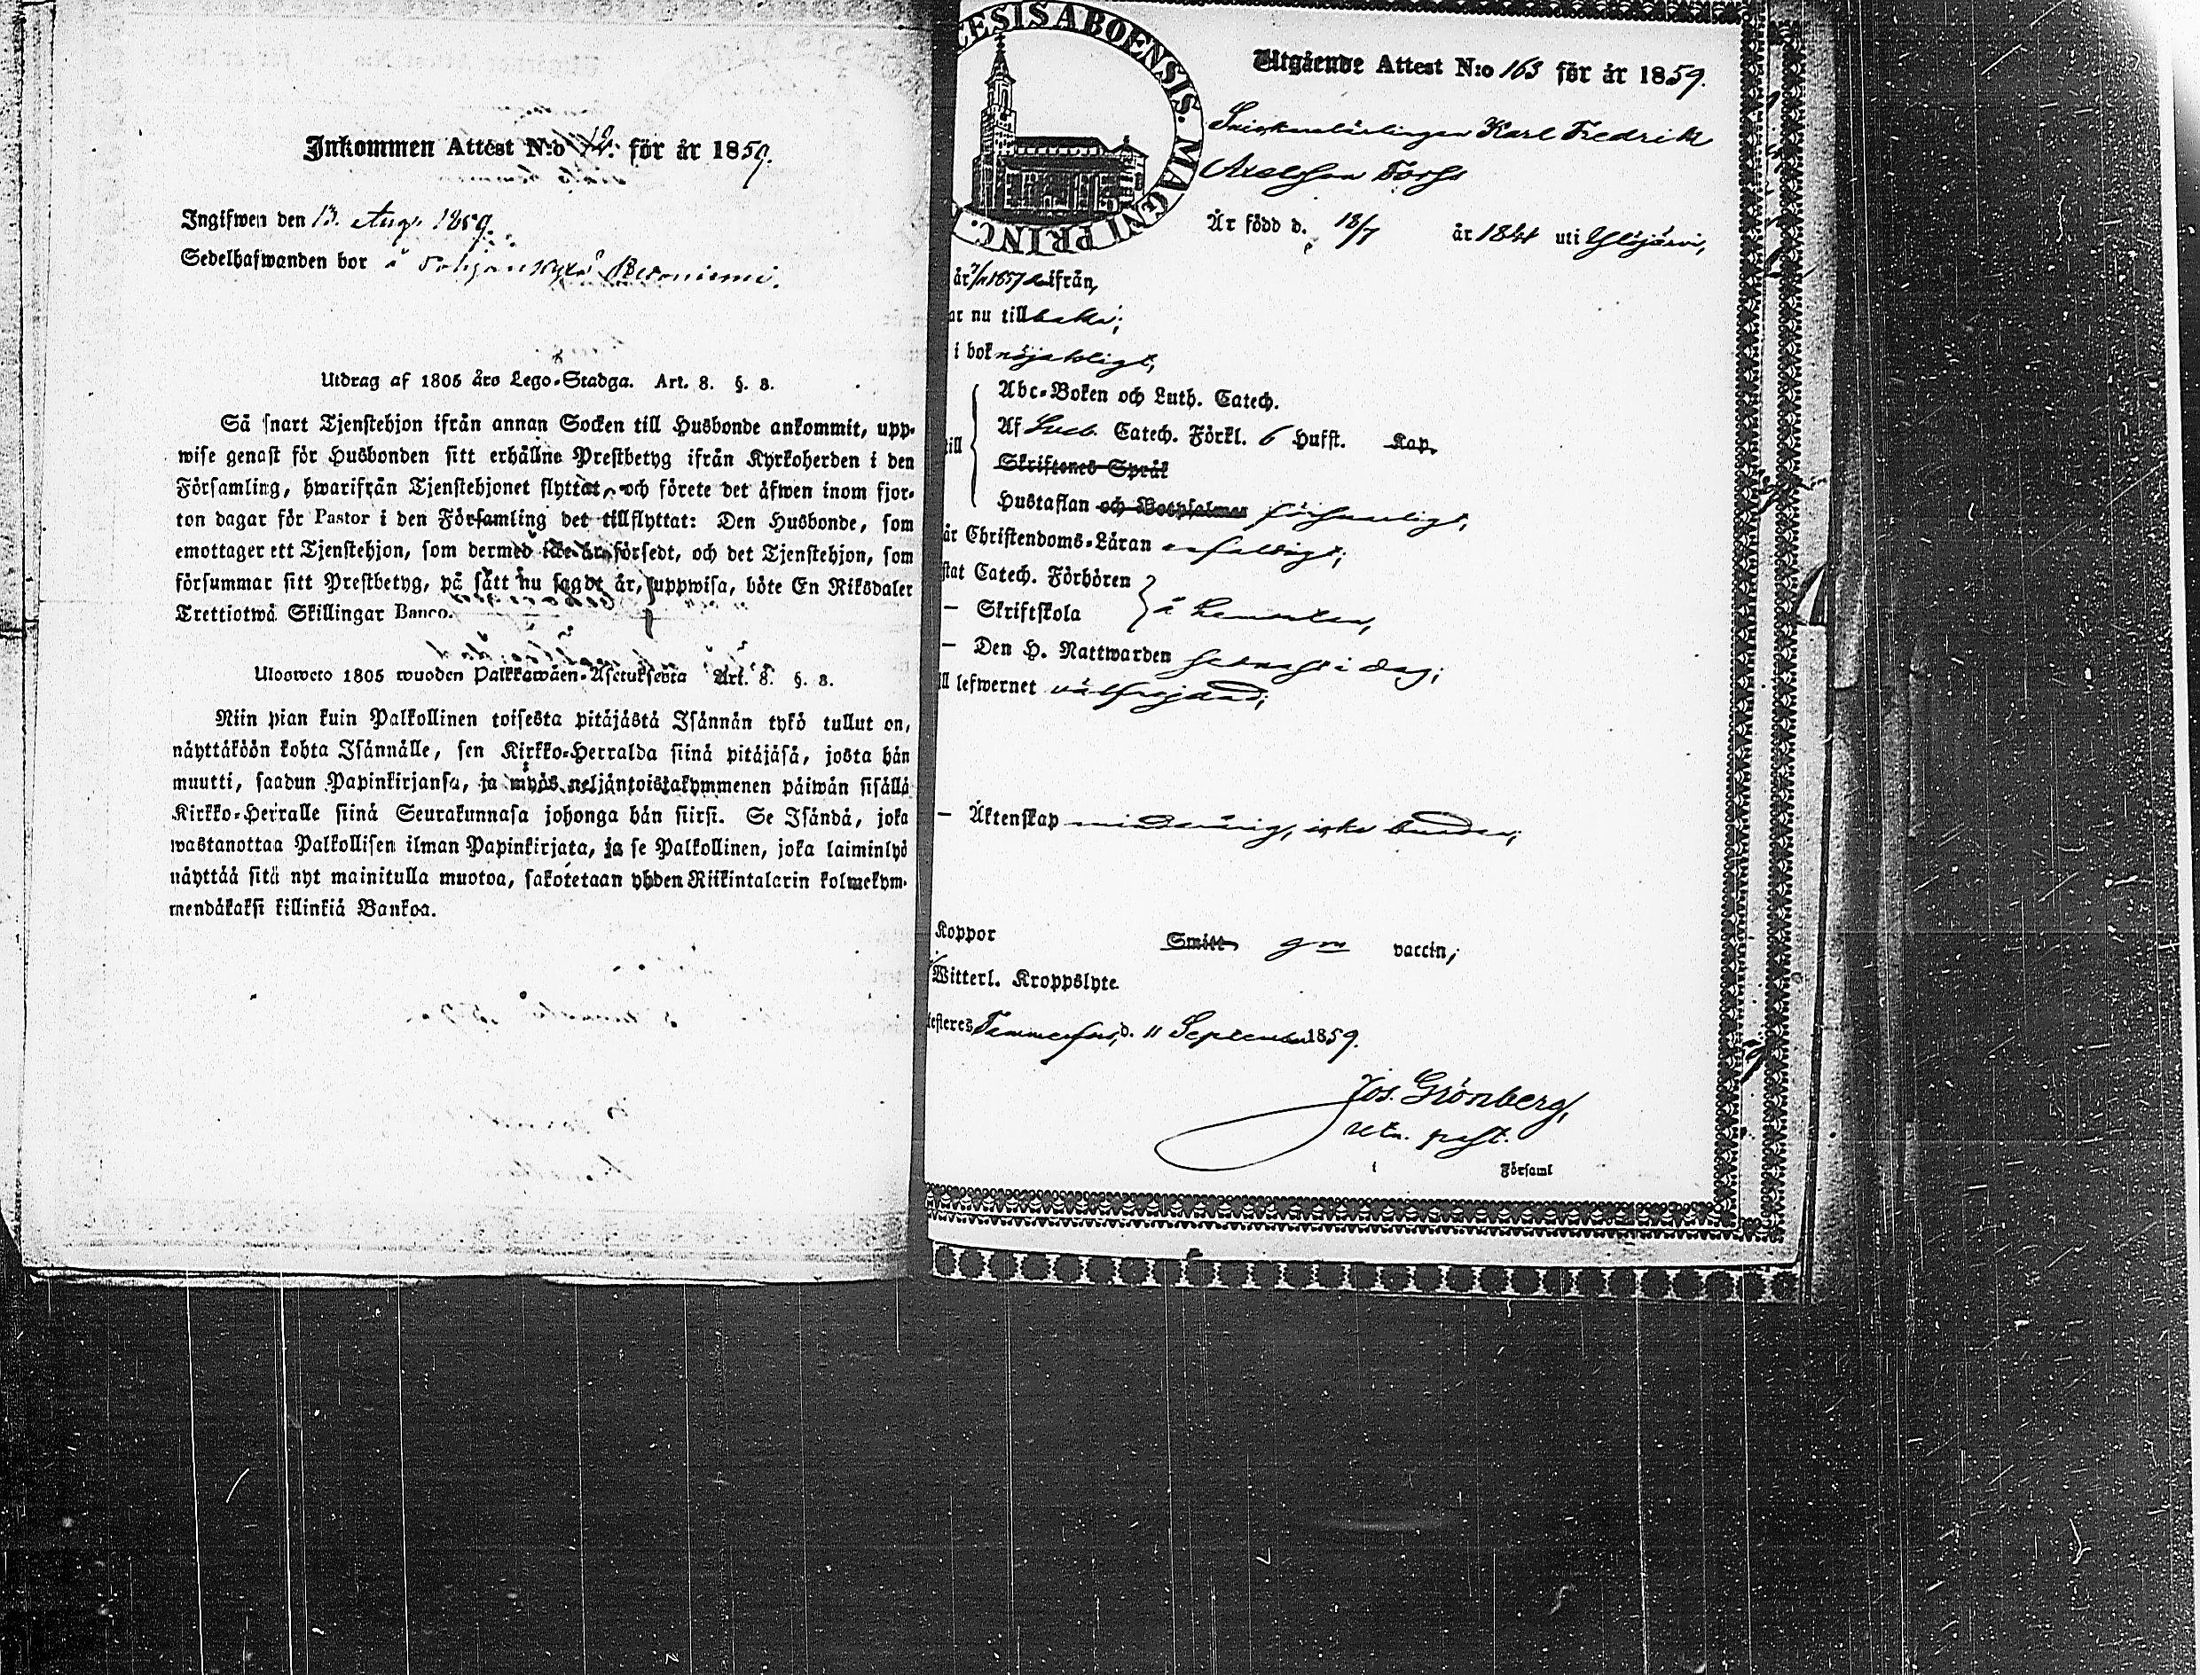 Inkommen Attest N:o för år 1859.
Ingifwen den 13. Aug. 1859.
Sedelhafwanden bor å
Utdrag af 1805 års Lego-Stadga. Art. 8. §. 8.
Så snart Tjenstehjon ifrån annan Socken till Husbonde ankommit, upp-
wise genast för Husbonden sitt erhållne Prestbetyg ifrån Kyrkoherden i den
Församling, hwarifrån Tjenstehjonet flyttat, och förete det äfwen inom fjor-
ton dagar för Pastor i den Församling det tillflyttat: Den Husbonde, som
emottager ett Tjenstehjon, som dermed icke är försedt, och det Tjenstehjon, som
försummar sitt Prestbetyg, på sätt nu sagdt är, uppwisa, böte En Riksdaler
Trettiotwå Skillingar Banco.
Ulosweto 1805 wuoden Palkkawäen-Asetuksesta Art. 8. §. 8.
Niin pian kuin Palkollinen toisesta pitäjästä Isännän tykö tullut on,
näyttäköön kohta Isännälle, sen Kirkko-Herralda siinä pitäjäsä, josta hän
muutti, saadun Papinkirjansa, ja myös neljäntoistakymmenen päiwän sisällä
Kirkko-Herralle siinä Seurakunnasa johonga hän siirsi. Se Isändä, joka
wastanottaa Palkollisen ilman Papinkirjata, ja se Palkollinen, joka laiminlyö
näyttää sitä nyt mainitulla muotoa, sakotetaan yhden Riikintalarin kolmekym-
mendäkaksi killinkiä Bankoa.
CESIS ABOENSIS. MAGNI PRINC.
Utgående Attest N:o 163 för år 1859.
Snickarelärlingen Karl Fredrik
Axelsson Forss
Är född d. 18/7 år 1841 uti Ylöjärvi,
år 1857 ifrån,
ar nu tillbaka;
i bok nöjaktligt,
Abc-Boken och Luth. Catech.
ill Af Sveb. Catech. Förkl. 6 Hufst. Kap.
Skriftenes Språk
Hustaflan och Botpsalmer försvarligt,
är Christendoms-Läran enfaldigt;
stat Catech. Förhören
— Skriftskola å hemorten,
— Den H. Nattwarden senast i dag;
ll lefwernet välfrejdad;
— Äktenskap minderårig, icke bunden;
Koppor Smitt gm vaccin;
Witterl. Kroppslyte
testeres Tammerfors, d. 11 September 1859.
Jos. Grönberg,
past.
i Församl